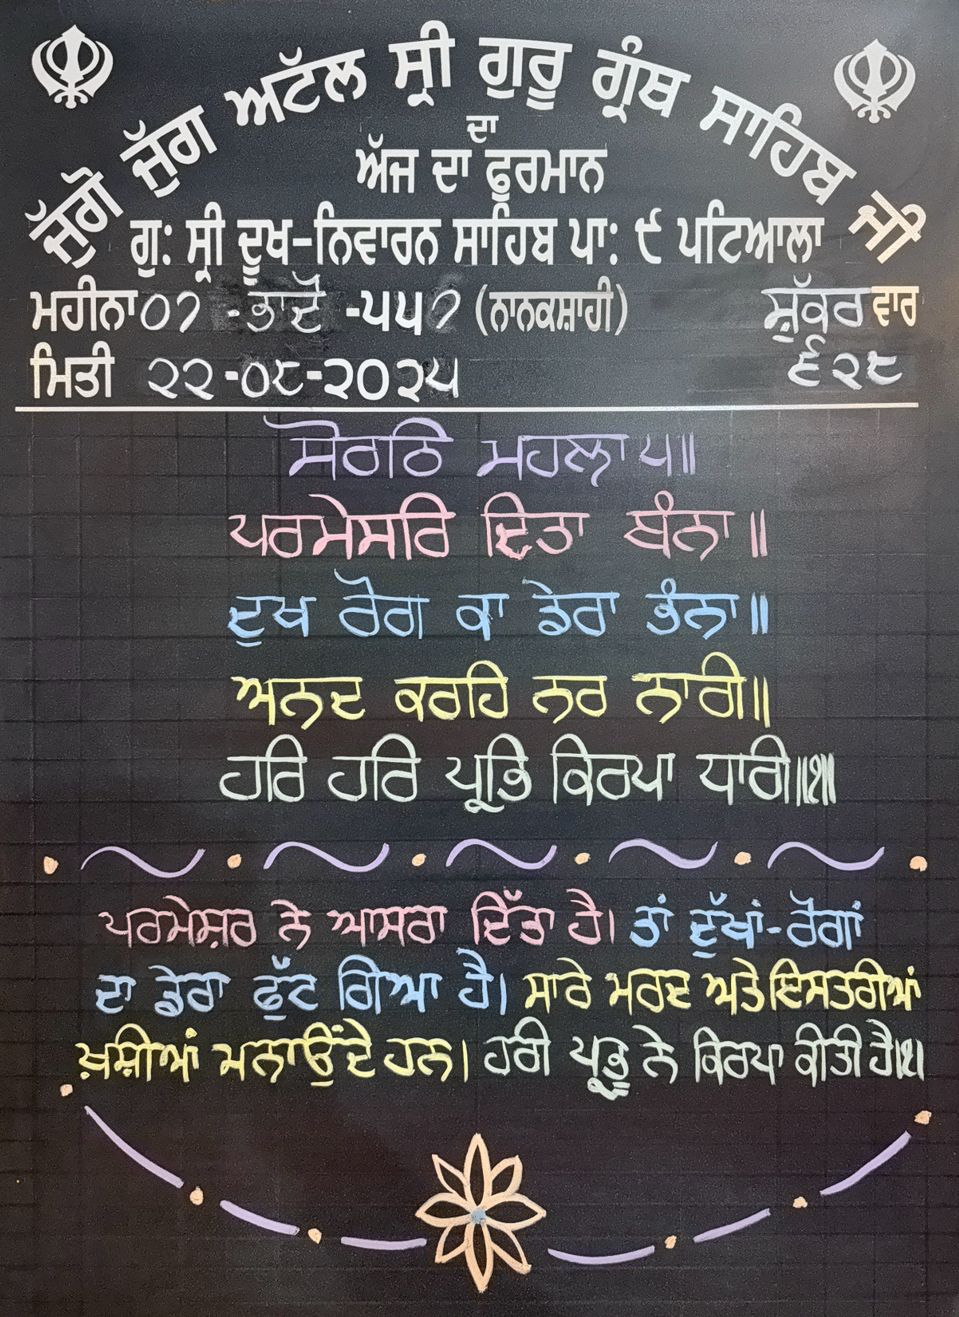 ਜੁੱਗੋ ਜੁੱਗ ਅਟੱਲ ਸ੍ਰੀ ਗੁਰੂ ਗ੍ਰੰਥ ਸਾਹਿਬ ਜੀ
ਦਾ
ਅੱਜ ਦਾ ਫੁਰਮਾਨ
ਗੁ: ਸ੍ਰੀ ਦੂਖ-ਨਿਵਾਰਨ ਸਾਹਿਬ ਪਾ: ੯ ਪਟਿਆਲਾ
ਮਹੀਨਾ 07 -ਭਾਦੋਂ -੫੫੭ (ਨਾਨਕਸ਼ਾਹੀ) ਸ਼ੁੱਕਰ ਵਾਰ
ਮਿਤੀ ੨੨-੦੮-੨੦੨੫ ੬੨੮
ਸੋਰਠਿ ਮਹਲਾ ੫॥
ਪਰਮੇਸਰਿ ਦਿਤਾ ਬੰਨਾ॥
ਦੁਖ ਰੋਗ ਕਾ ਡੇਰਾ ਭੰਨਾ॥
ਅਨਦ ਕਰਹਿ ਨਰ ਨਾਰੀ॥
ਹਰਿ ਹਰਿ ਪ੍ਰਭਿ ਕਿਰਪਾ ਧਾਰੀ॥੧॥
ਪਰਮੇਸ਼ਰ ਨੇ ਆਸਰਾ ਦਿੱਤਾ ਹੈ। ਤਾਂ ਦੁੱਖਾਂ-ਰੋਗਾਂ
ਦਾ ਡੇਰਾ ਫੁੱਟ ਗਿਆ ਹੈ। ਸਾਰੇ ਮਰਦ ਅਤੇ ਇਸਤਰੀਆਂ
ਖ਼ੁਸ਼ੀਆਂ ਮਨਾਉਂਦੇ ਹਨ। ਹਰੀ ਪ੍ਰਭੂ ਨੇ ਕਿਰਪਾ ਕੀਤੀ ਹੈ।੧।